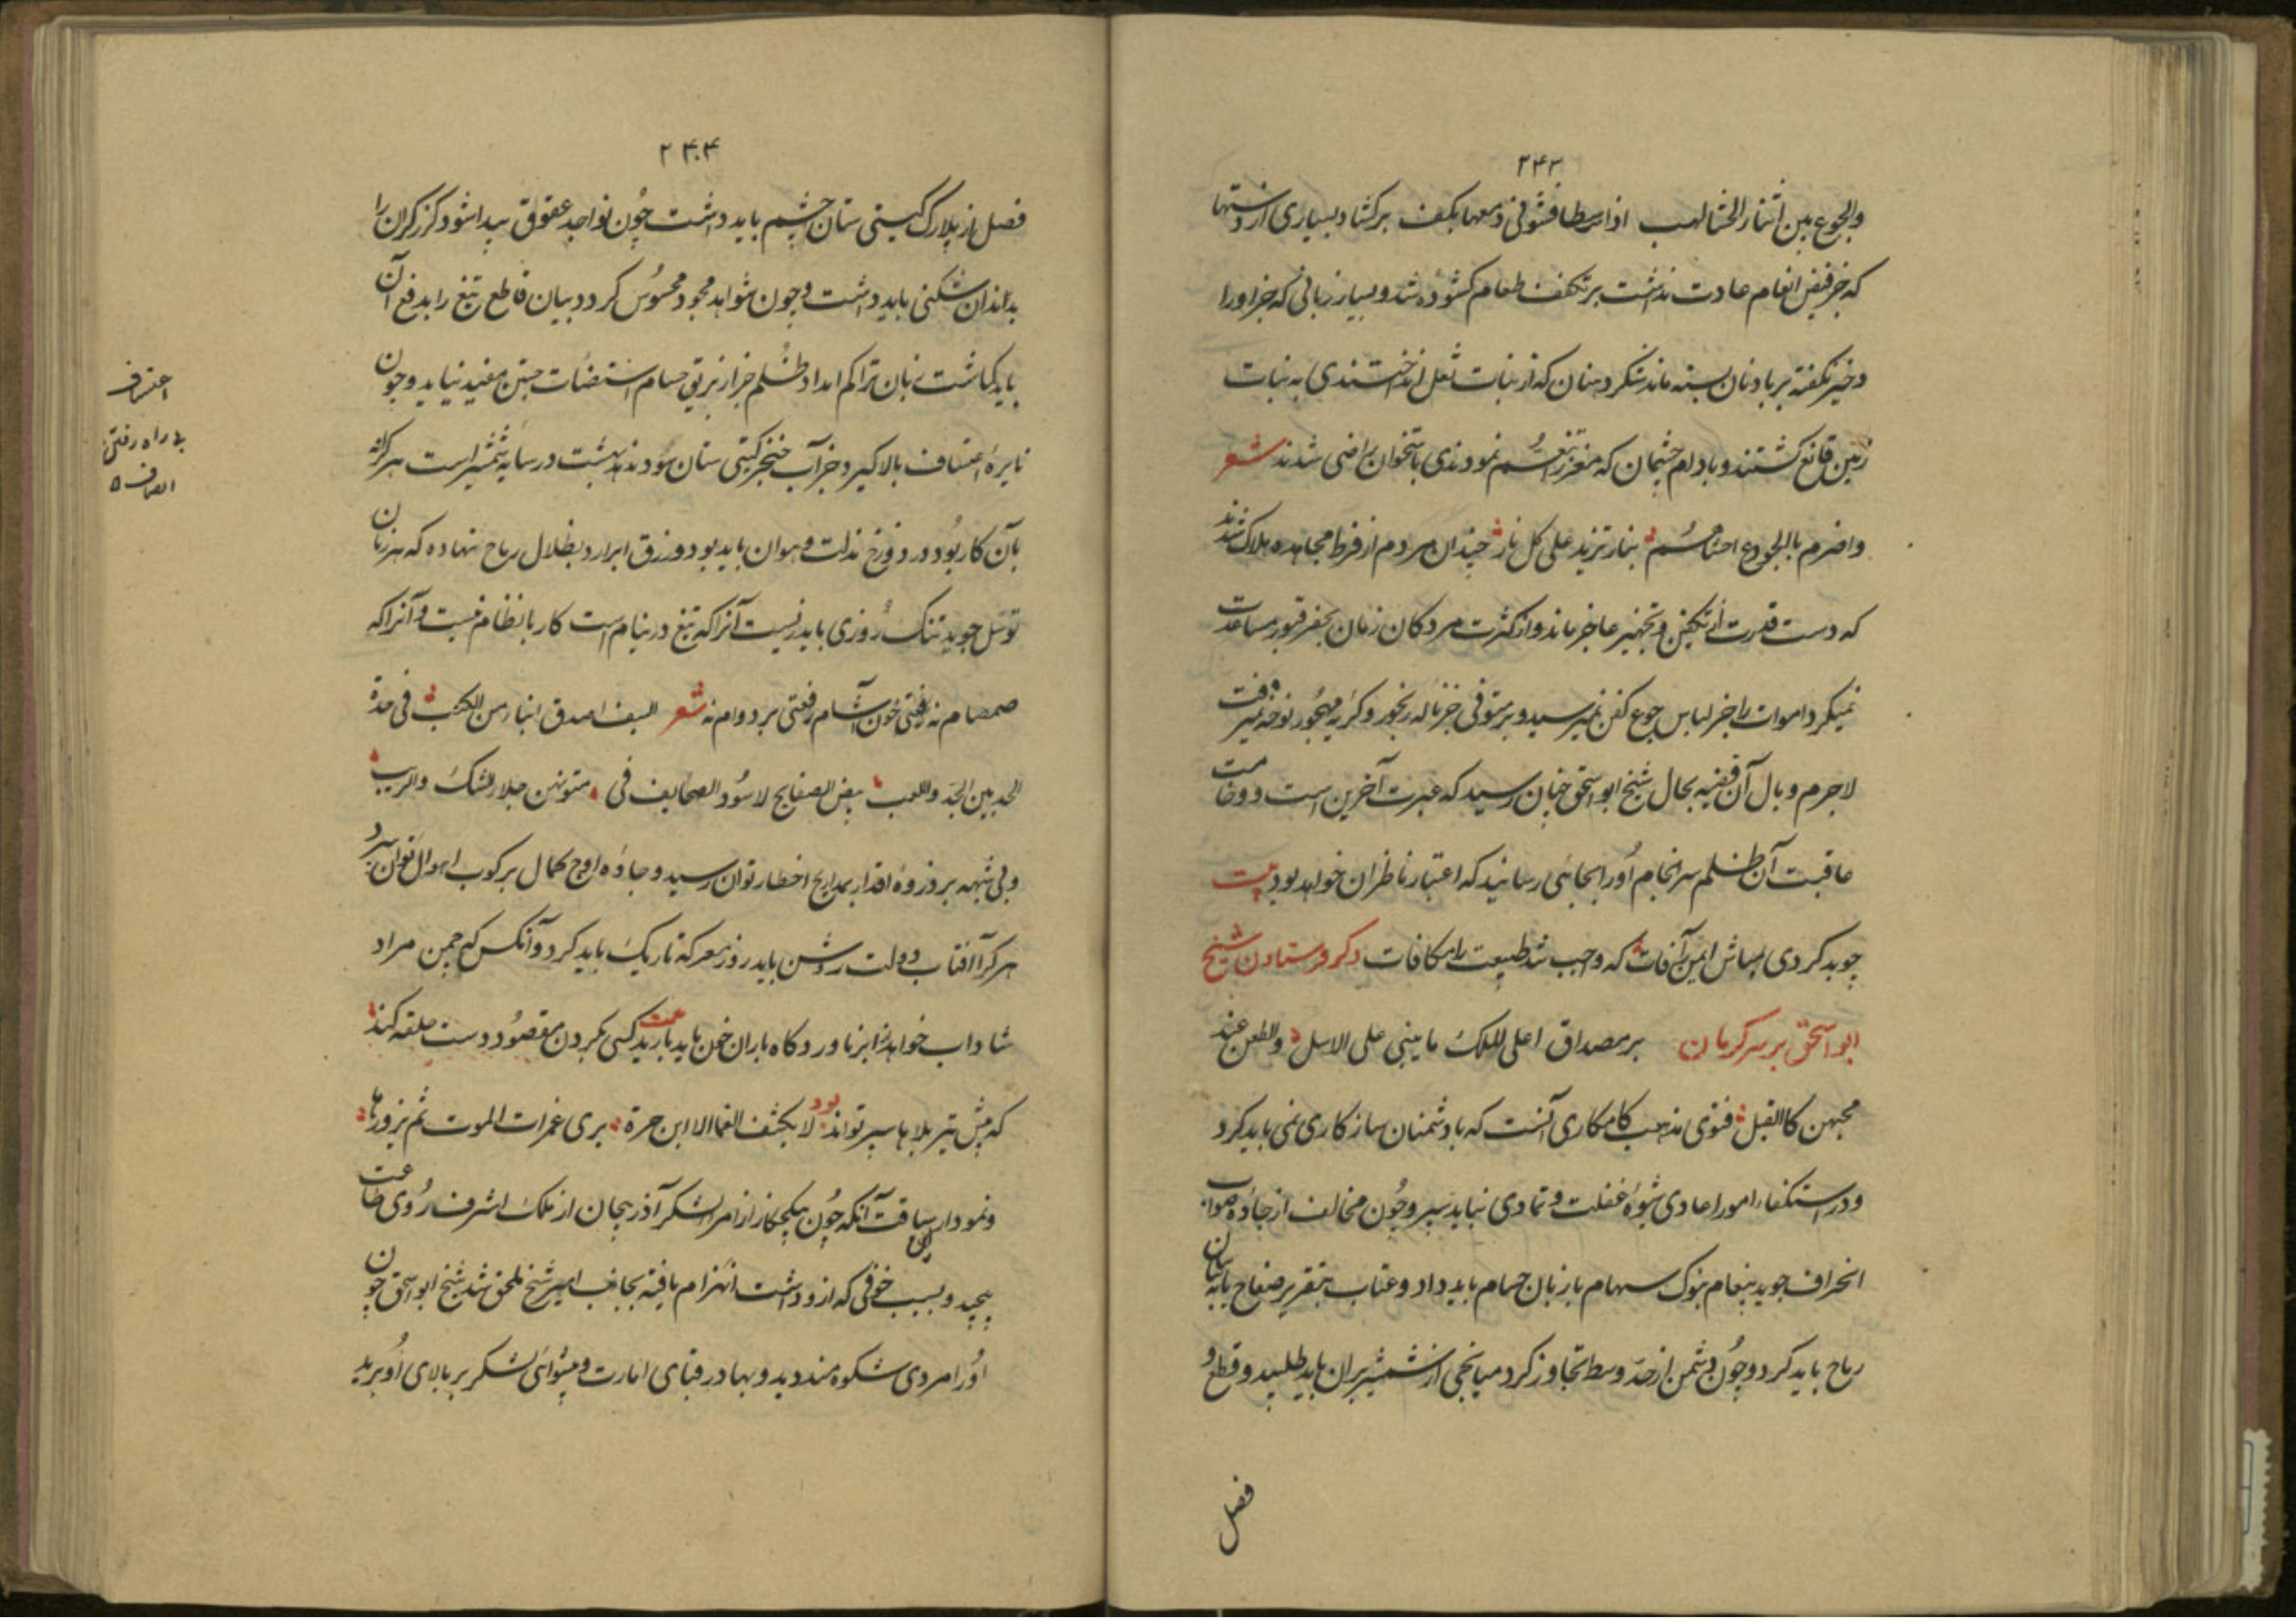 ۲۴۳
والجوع بین اثناء الحشا لهب اذا سطا فشوفی دمعها بکف برکشاد بسیاری از دستها
که جز قبض انعام عادت نداشت بر تکفف طعام کشوده شد و بسیار زبانی که جز او را
و خیر نکفته بر یاد نان بسته ماند شکر دهنان که از نبات نقل انداختندی به نبات
زمین قانع کشتند و بادام چشمان که مغز تنعم نمودندی باستخوان راضی شدند شعر
واضرم بالجوع احشاهم بنار تزید علی کل نار چندان مردم از فرط مجاهده هلاک شدند
که دست قدرت از تکفین و تجهیز عاجز ماند و از کثرت مردکان زمان بحفر قبور مساعدت
نمیکرد اموات را جز لباس جوع کفن نمیرسید و بر متوفی جز ناله رنجور و کریه مهجور نوحه نمیرفت
لاجرم وبال آن قضیه بحال شیخ ابواسحق چنان رسید که عبرت آخرین است و وخامت
عاقبت آن ظلم سرانجام او را بجائی رسانید که اعتبار ناظران خواهد بود بیت
چو بد کردی مباش ایمن ز آفات که واجب شد طبیعت را مکافات ذکر فرستادن شیخ
ابواسحق بر سر کرمان بر مصداق اعلی الملک ما یبنی علی الاسل والطعن عند
محبهن کالقبل فتوی مذهب کامکاری آنست که با دشمنان سازکاری نمی باید کرد
و در استکفاء امور اعادی شیوه غفلت و تمادی نباید سپرد و چون مخالف از جاده صواب
انحراف جوید پیغام بنوک سهام با زبان حسام باید داد و عتاب بتقریر صفاح یا به بیان
رماح باید کرد و چون دشمن از حد وسط تجاوز کرد میانجی از شمشیر بران باید طلبید و قطع و
فصل
۲۴۴
فصل از بلارک کیتی ستان چشم باید داشت چون نواجد عقوق پیدا شود کرز کران را
بدندان شکنی باید داشت و چون شواهد جحود محسوس کردد بیان قاطع تیغ را بدفع آن
باید کماشت زبان تراکم امداد ظلم جز از بریق حسام استضائت جستن مفید نیاید و چون
نایره اعتساف بالا کیرد جز آب خنجر کیتی ستان سود ندهد بهشت در سایه شمشیر است هر که نه
بآن کار بود در دوزخ مذلت و هوان باید بود و رزق ابرار در بظلال رماح نهاده که هر زمان
توسل جوید تنک روزی باید زیست آنرا که تیغ در نیام است کار بانظام نیست و آنرا که
صمصام نه رفتی خون آشام رفعتی بر دوام نه شعر السیف اصدق انباء من الکتب فی حده
الحد بین الجد واللعب بیض الصفایح لا سود الصحایف فی متونهن جلاء الشک والریب
و بی شبهه بر ذروه اقدار بمدارج اخطار توان رسید و جاده اوج کمال برکوب اهوال توان سپرد
هر کرا آفتاب دولت روشن باید روز معرکه تاریک باید کرد و آنکس که چمن مراد
شاداب خواهد از ابر ناوردکاه باران خون باید بارید بیت کسی بکردن مقصود دست حلقه کند
که پیش تیر بلاها سپر تواند بود لا یکشف الغما الا ابن حرة یری غمرات الموت ثم یزورها
و نمودار سیاقت آنکه چون بیکجکاز از امراء لشکر آذربیجان از ملک اشرف روی طاعت
بپیچید و بسبب خوفی که از و داشت انهزام یافته بجانب امیر شیخ ملحق شد شیخ ابواسحق چون
او را مردی شکوه مند دید و بهادر قبای امارت و پیشوائی لشکر بر بالای او برید
بی راه رفتن